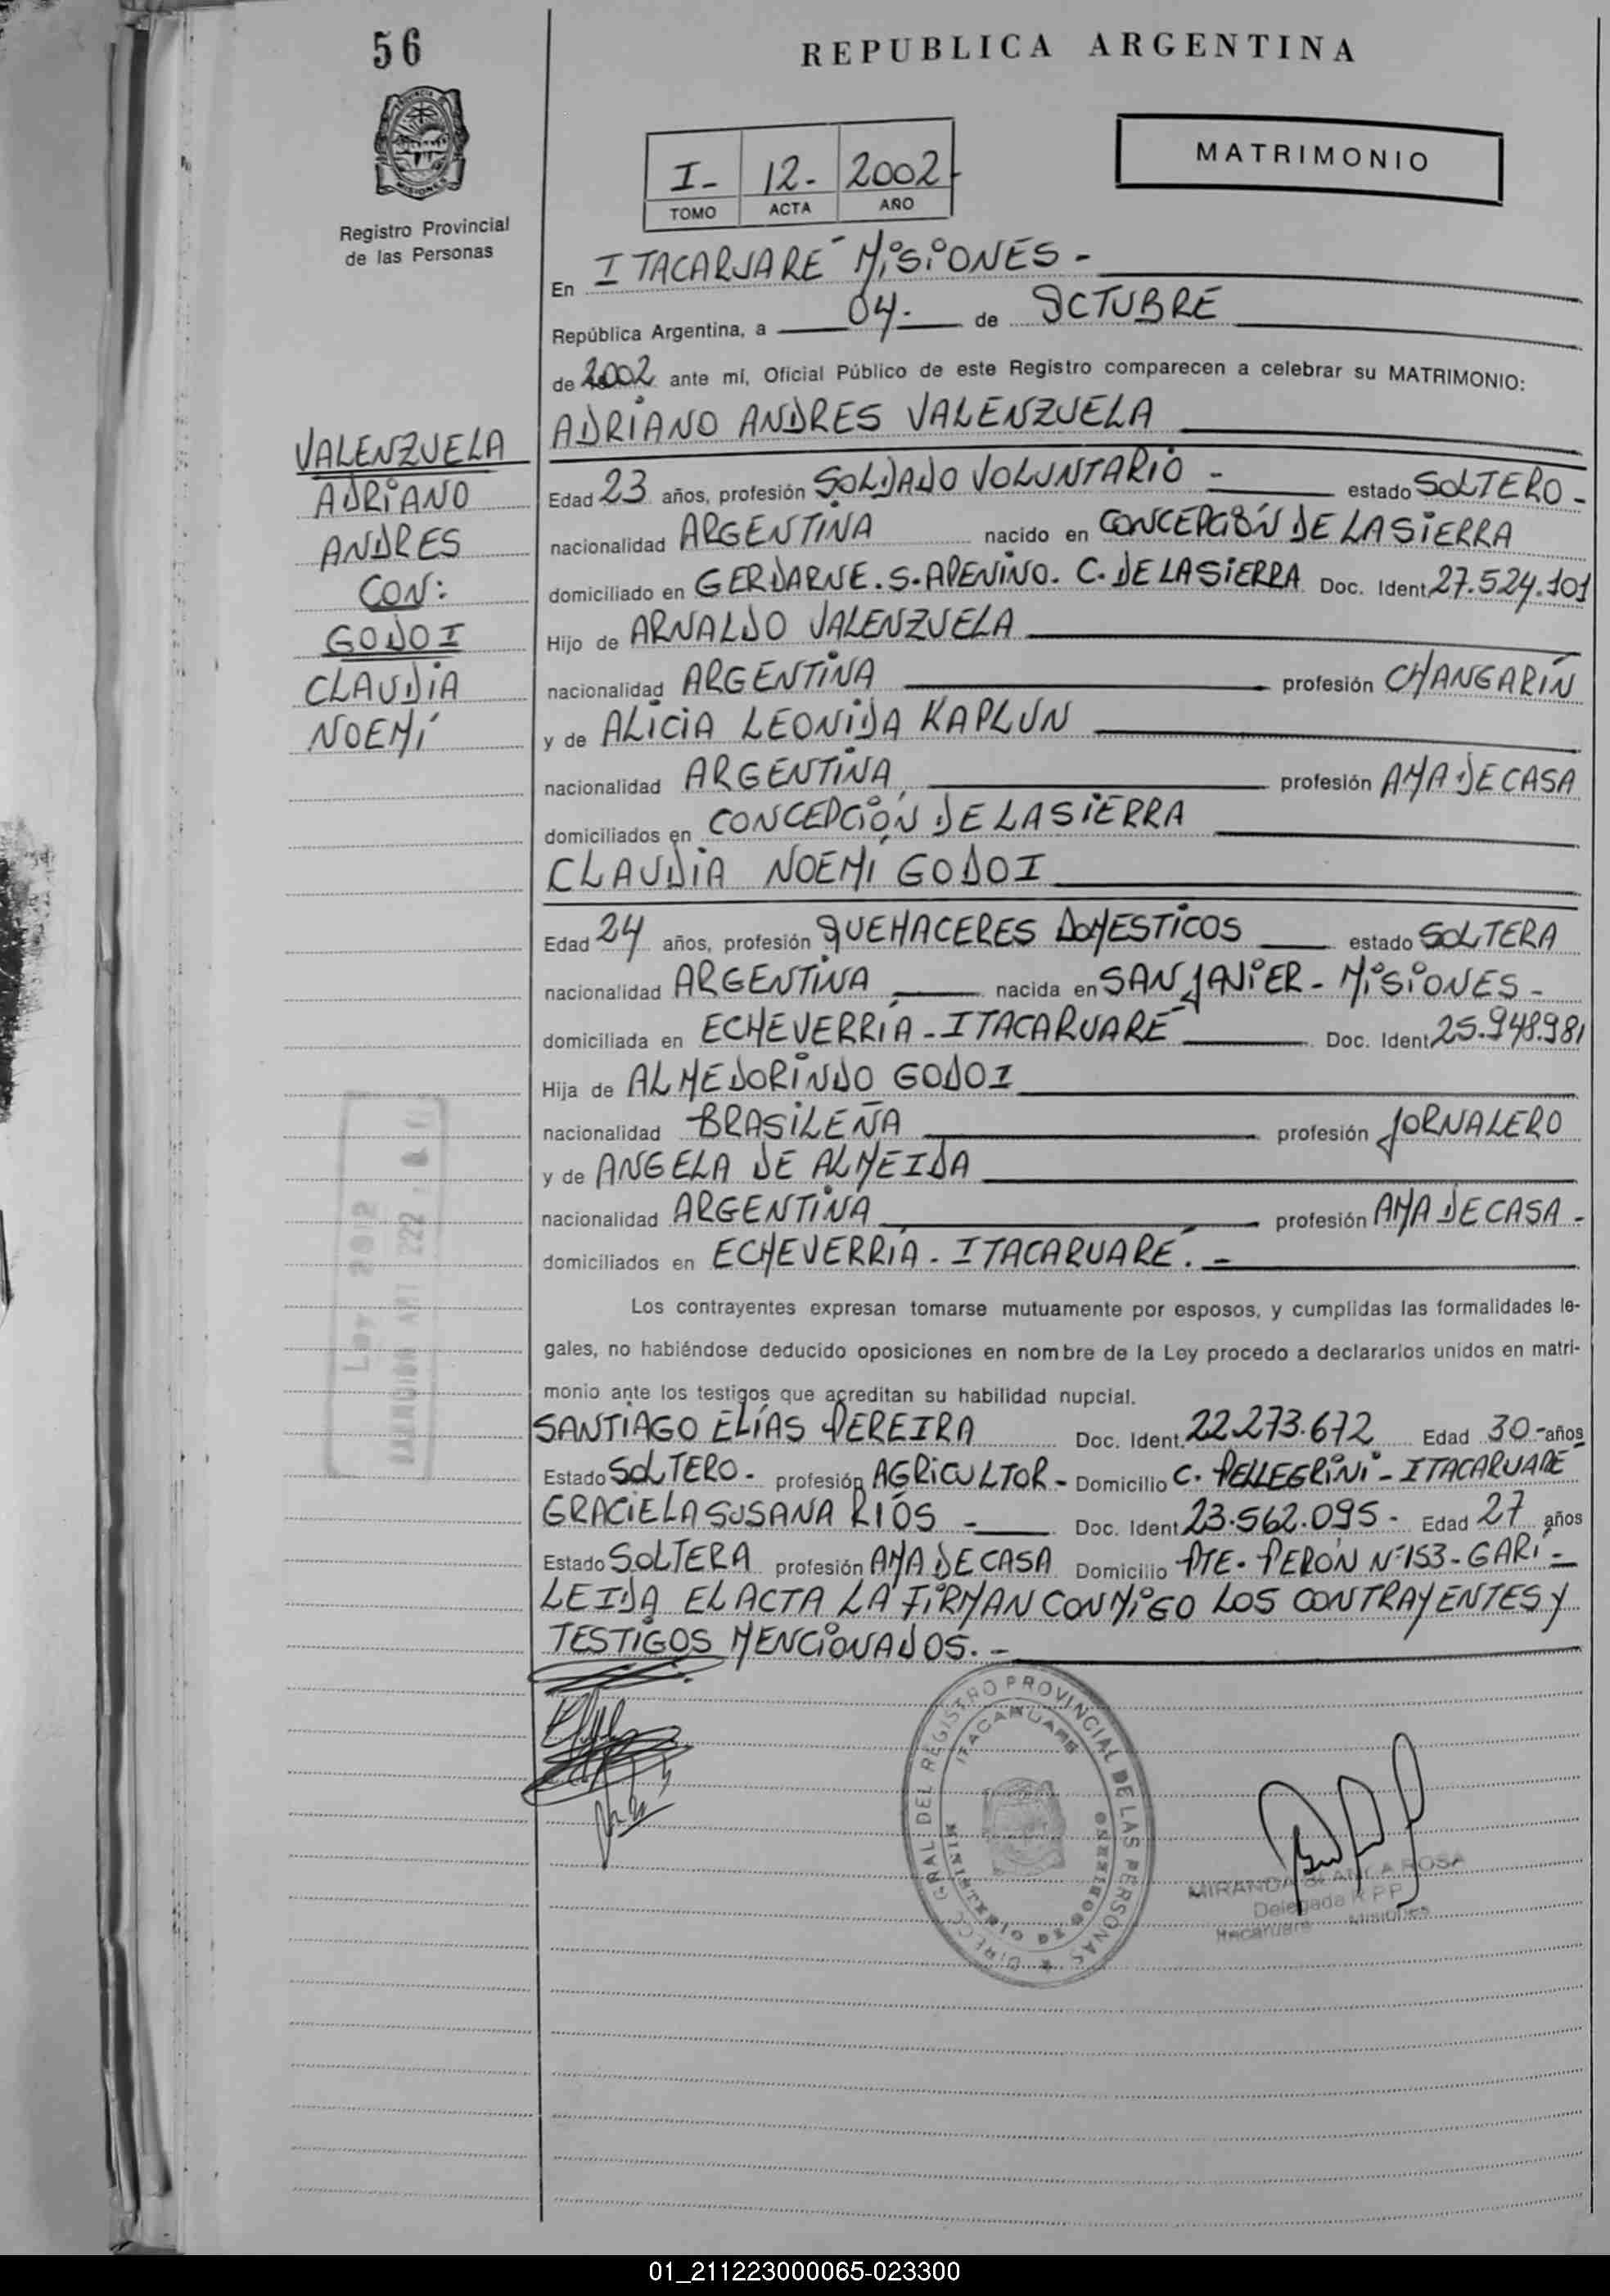 56
REPUBLICA ARGENTINA
PROVINCIA
MISIONES
I- 12- 2002-
TOMO ACTA AÑO
MATRIMONIO
Registro Provincial
de las Personas
En ITACARUARÉ MISIONES -
República Argentina, a 04- de OCTUBRE
de 2002 ante mí, Oficial Público de este Registro comparecen a celebrar su MATRIMONIO:
VALENZUELA
ADRIANO
ANDRES
CON:
GODOI
CLAUDIA
NOEMÍ
ADRIANO ANDRES VALENZUELA
Edad 23 años, profesión SOLDADO VOLUNTARIO - estado SOLTERO -
nacionalidad ARGENTINA nacido en CONCEPCIÓN DE LA SIERRA
domiciliado en C. DE LA SIERRA Doc. Ident. 27.524.101
Hijo de ARNALDO VALENZUELA
nacionalidad ARGENTINA profesión CHANGARÍN
y de ALICIA LEONIDA KAPLUN
nacionalidad ARGENTINA profesión AMA DE CASA
domiciliados en CONCEPCIÓN DE LA SIERRA
CLAUDIA NOEMÍ GODOI
Edad 24 años, profesión QUEHACERES DOMESTICOS estado SOLTERA
nacionalidad ARGENTINA nacida en SAN JAVIER - MISIONES -
domiciliada en ECHEVERRÍA - ITACARUARÉ Doc. Ident. 25.948.981
Hija de ALMEDORINDO GODOI
nacionalidad BRASILEÑA profesión JORNALERO
y de ANGELA DE ALMEIDA
nacionalidad ARGENTINA profesión AMA DE CASA -
domiciliados en ECHEVERRÍA - ITACARUARÉ. -
Los contrayentes expresan tomarse mutuamente por esposos, y cumplidas las formalidades le-
gales, no habiéndose deducido oposiciones en nombre de la Ley procedo a declararlos unidos en matri-
monio ante los testigos que acreditan su habilidad nupcial.
SANTIAGO ELÍAS PEREIRA Doc. Ident. 22.273.672 Edad 30- años
Estado SOLTERO - profesión AGRICULTOR - Domicilio C. PELLEGRINI - ITACARUARÉ
GRACIELA SUSANA RIOS - Doc. Ident. 23.562.095 - Edad 27 años
Estado SOLTERA profesión AMA DE CASA Domicilio PTE. PERÓN Nº 153 - GARÍ -
LEIDA EL ACTA LA FIRMAN CONMIGO LOS CONTRAYENTES Y
TESTIGOS MENCIONADOS. -
DIRECC. GRAL DEL REGISTRO PROVINCIAL DE LAS PERSONAS
ITACARUARE
MINISTERIO DE GOBIERNO
MIRANDA BLANCA ROSA
Delegada R.P.P
Itacaruare Misiones
01_211223000065-023300